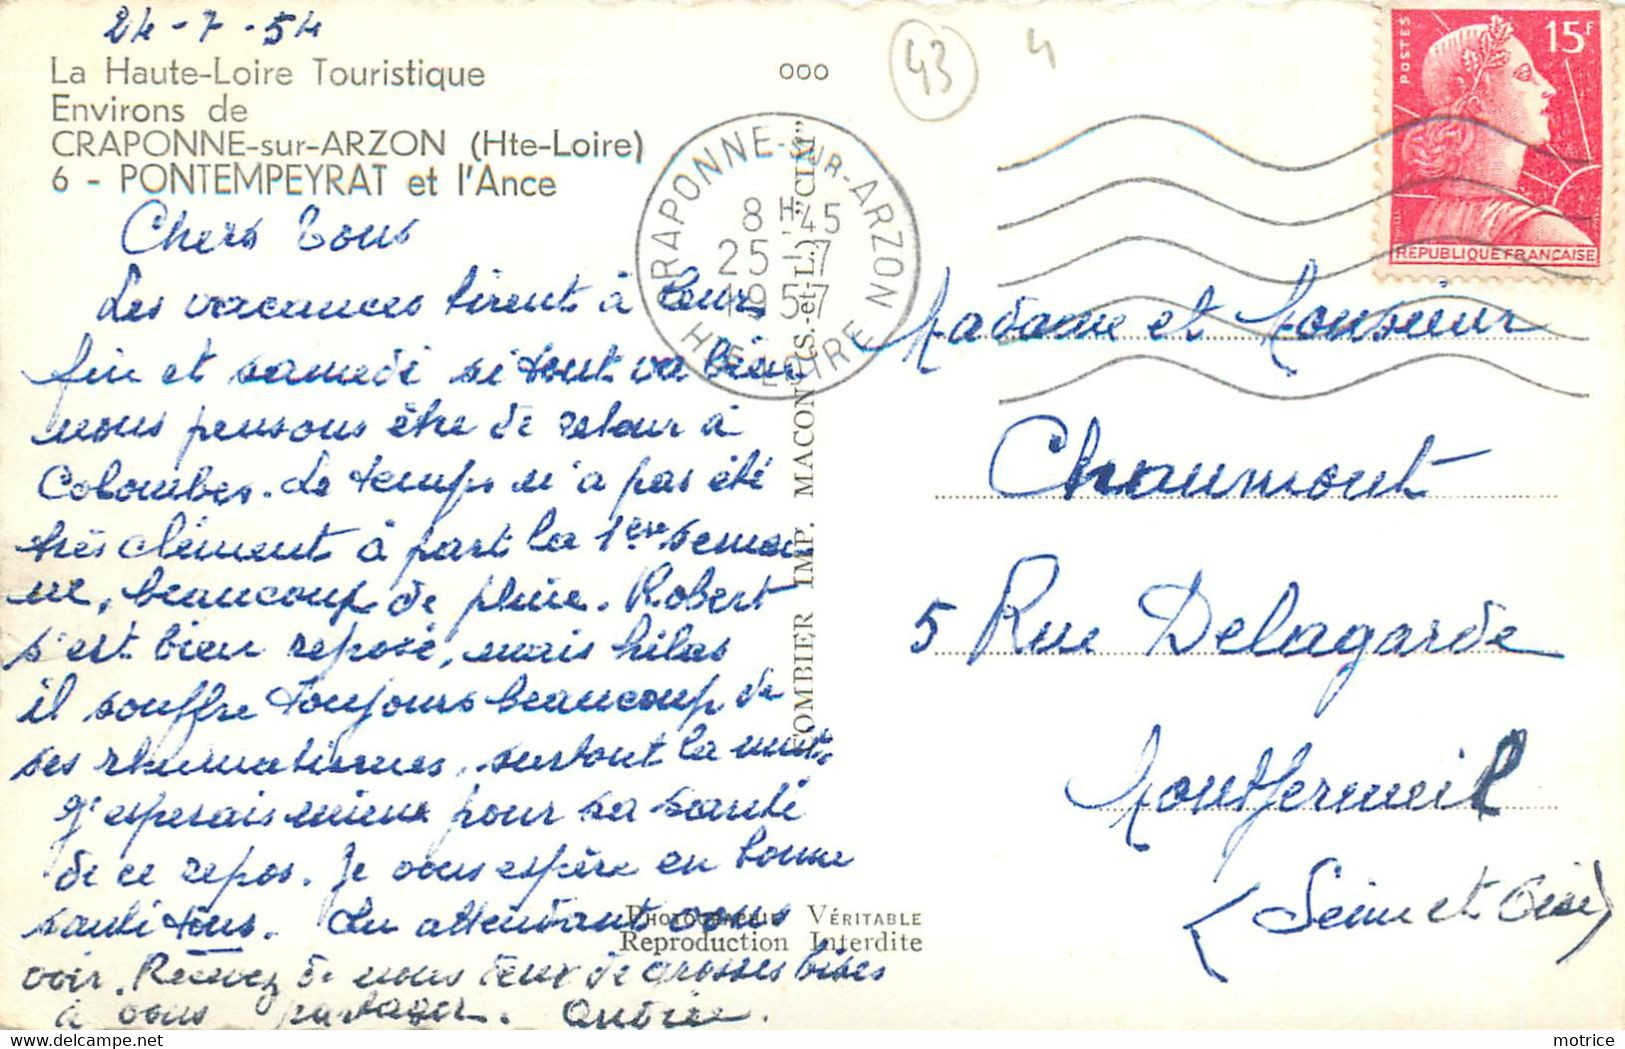 24-7-54
La Haute-Loire Touristique
Environs de
CRAPONNE-sur-ARZON (Hte-Loire)
6 - PONTEMPEYRAT et l'Ance
Chers Tous
Les vacances tirent à leur
fin et samedi si tout va bien
nous pensons être de retour à
Colombes. Le temps n'a pas été
très clément à part la 1ère semai
ne, beaucoup de pluie. Robert
s'est bien reposé, mais hélas
il souffre toujours beaucoup de
ses rhumatismes, surtout la nuit,
J'espérais mieux pour sa santé
de ce repos. Je vous espère en bonne
santé tous. En attendant vous
voir. Recevez de nous deux de grosses bises
à vous partager. Andrée.
ooo
43
4
CRAPONNE-SUR-ARZON
8H45
25-7
1957
HTE LOIRE
COMBIER IMP. MACON (S.-et-L.) "CIM"
PHOTOGRAPHIE VÉRITABLE
Reproduction Interdite
POSTES
15F
REPUBLIQUE FRANCAISE
Madame et Monsieur
Chaumont
5 Rue Delagarde
Montfermeil
(Seine et Oise)
motrice